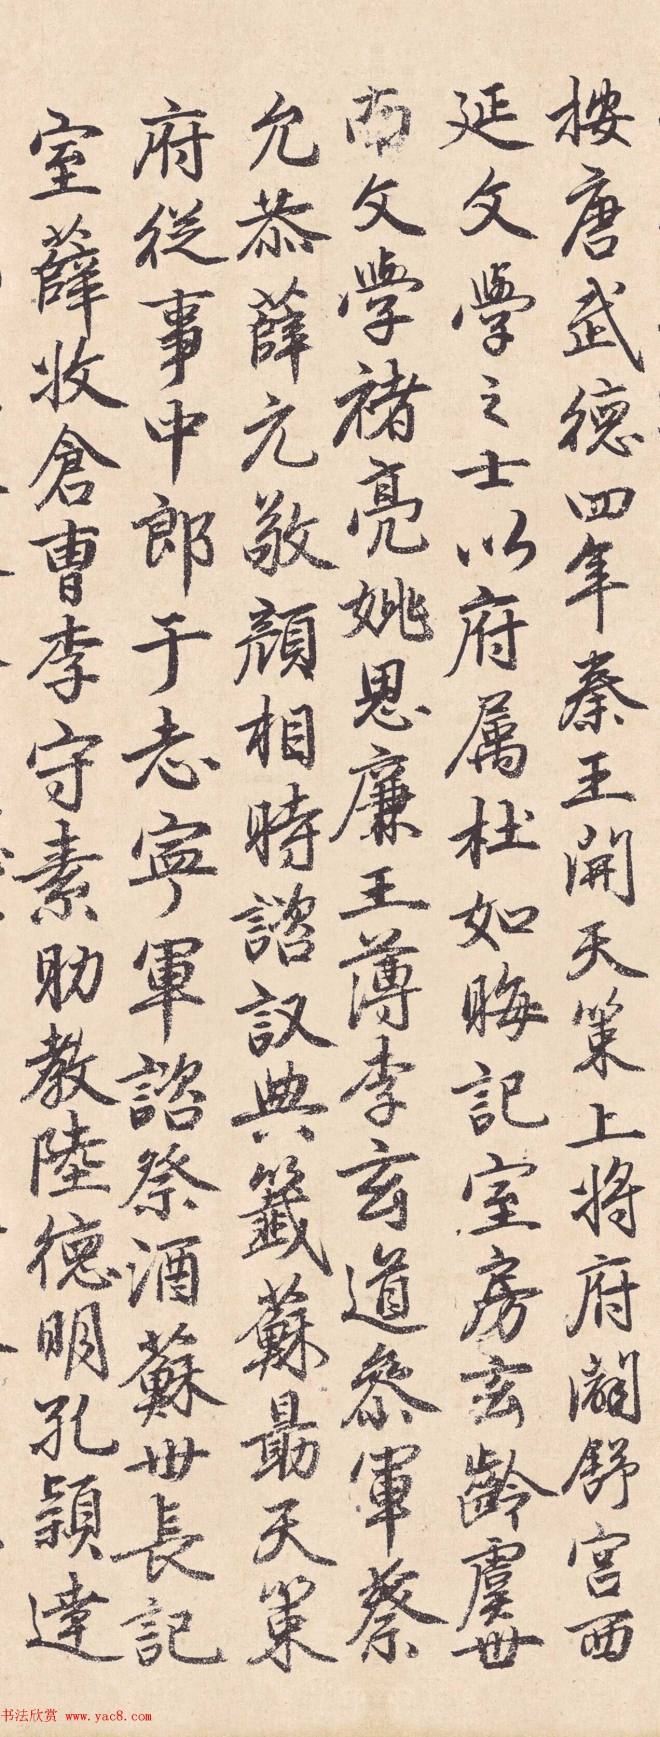 按唐武德四年秦王開天策上將府闢舒宮西
延文學之士以府属杜如晦記室房玄齡虞世
南文學褚亮姚思廉王薄李玄道叅軍蔡
允恭薛元敬顏相時諮議典籤蘇勗天策
府從事中郎于志寧軍諮祭酒蘇世長記
室薛收倉曹李守素助教陸德明孔穎達
书法欣赏 www.yac8.com